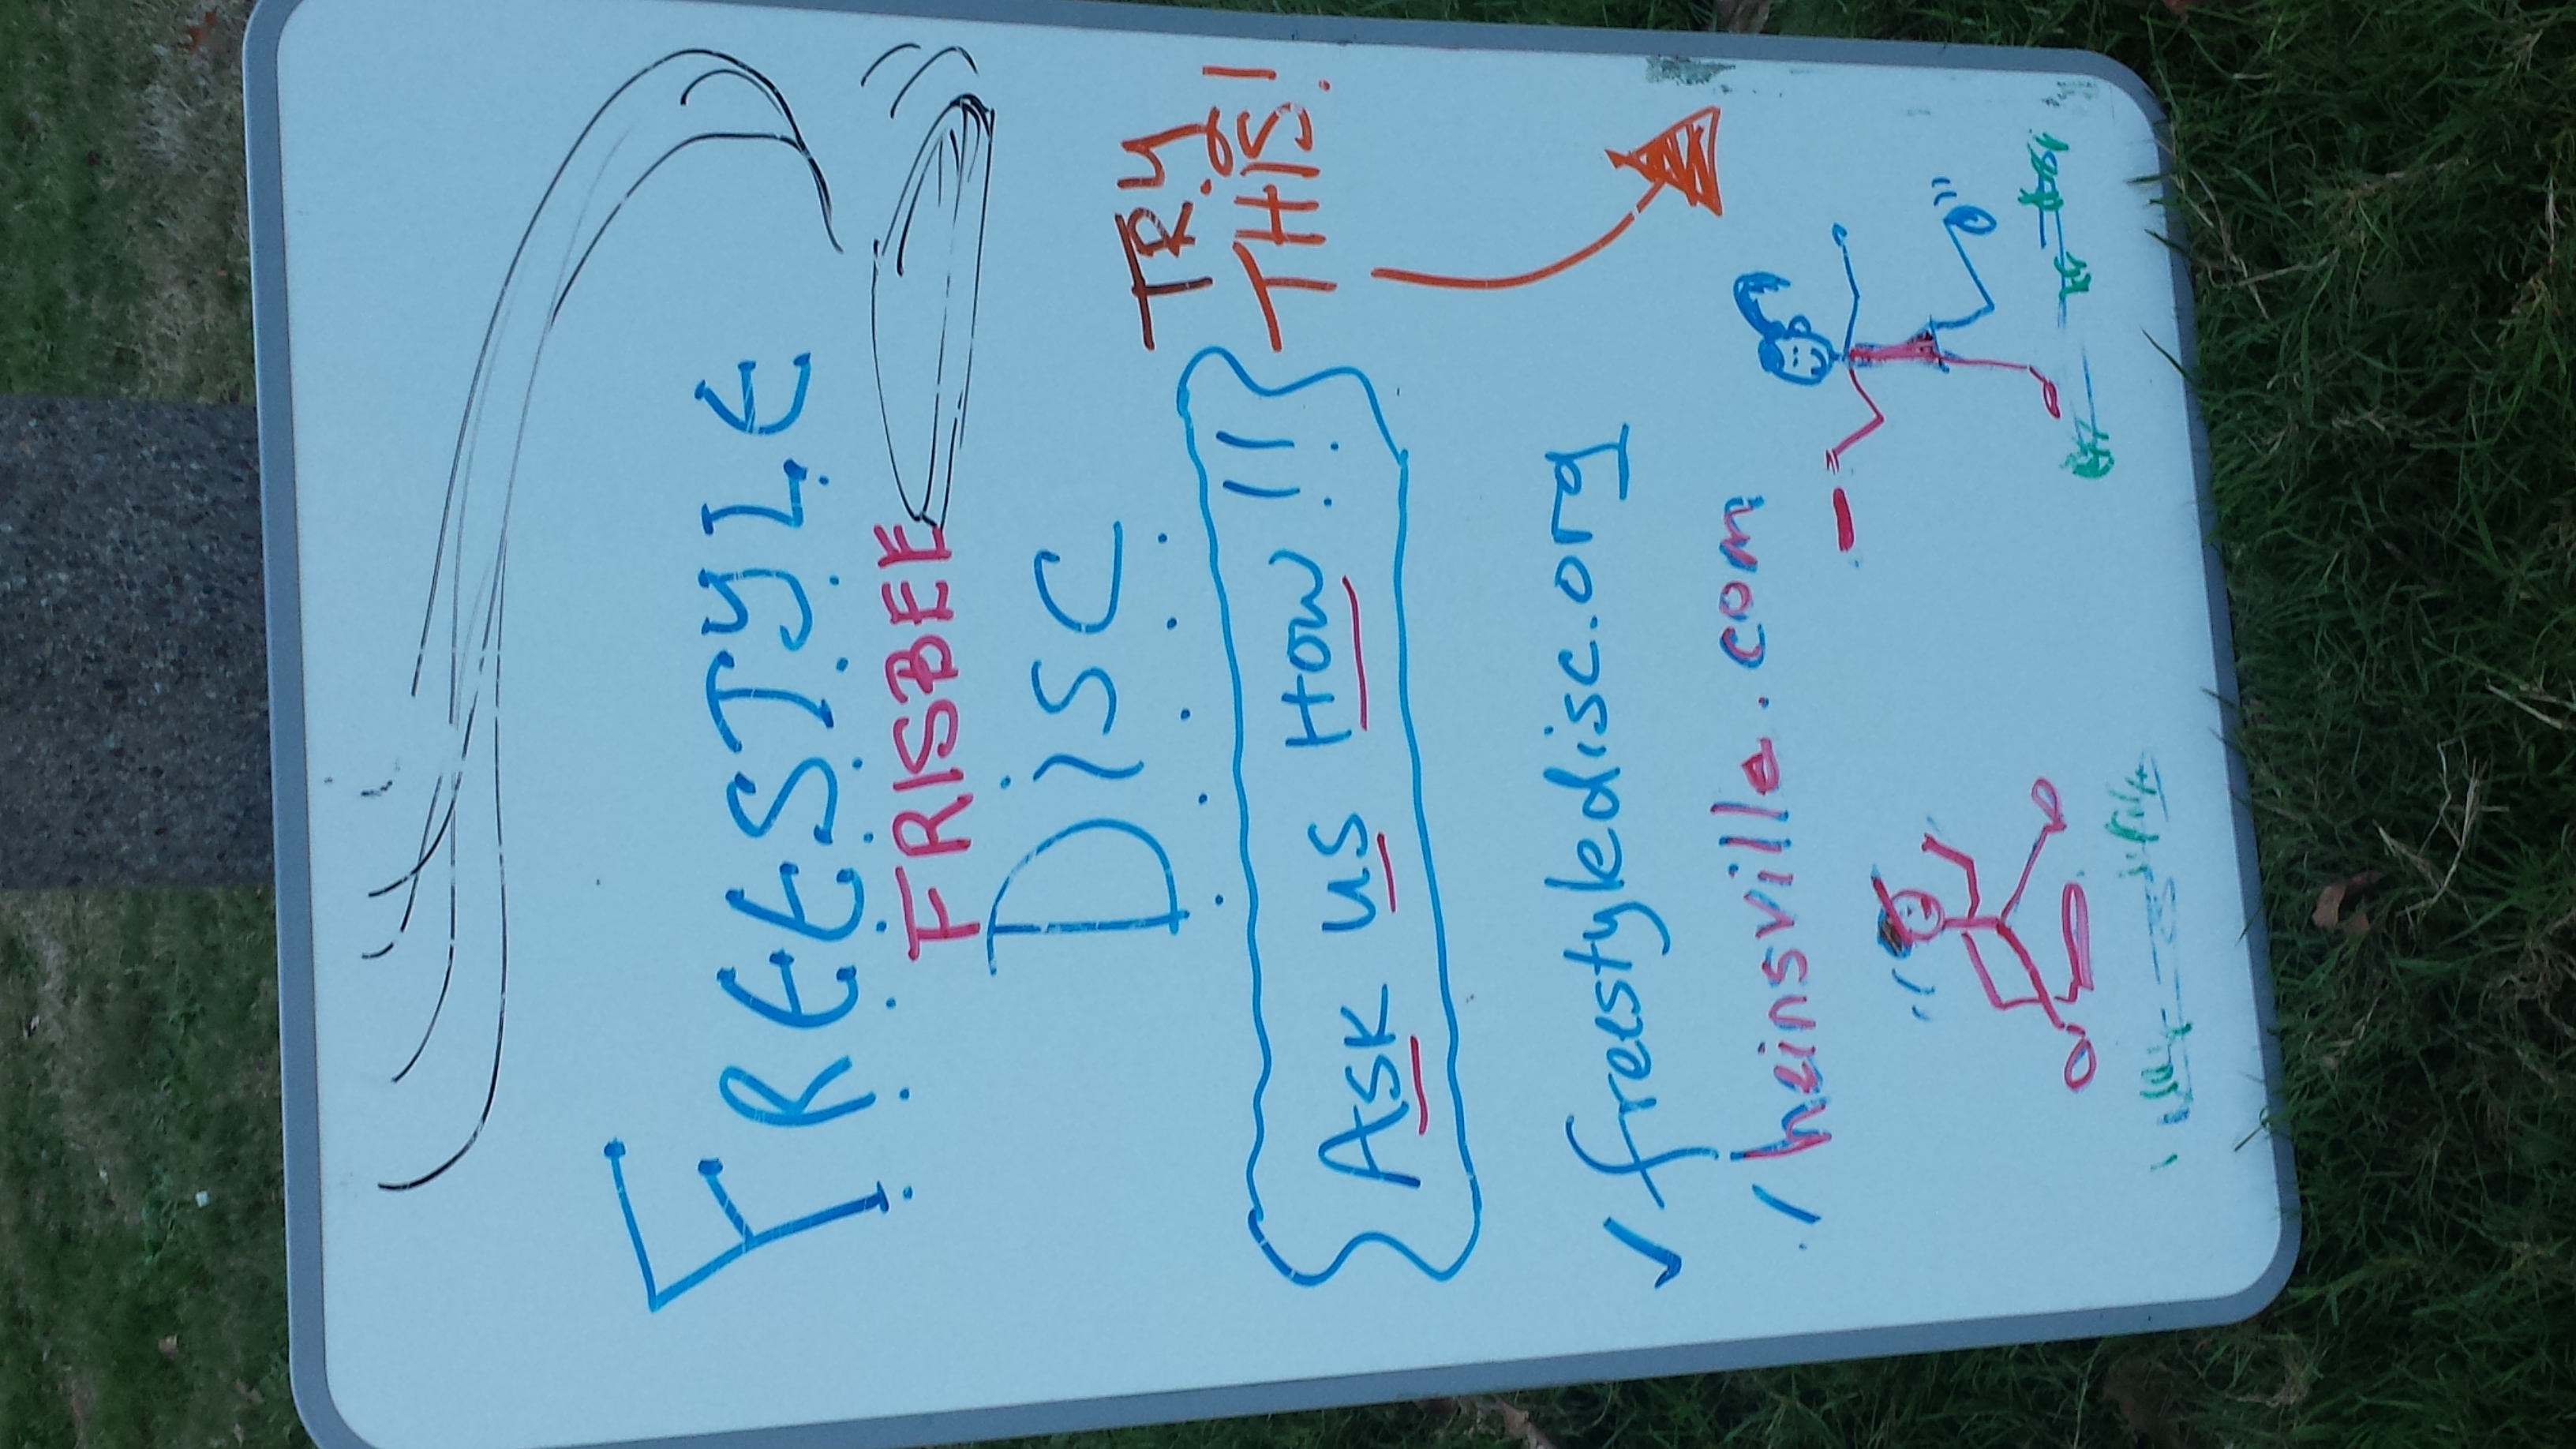 FREESTYLE
FRISBEE
DISC
TRY
THIS!
ASK us How !!
freestyledisc.org
heinsville.com